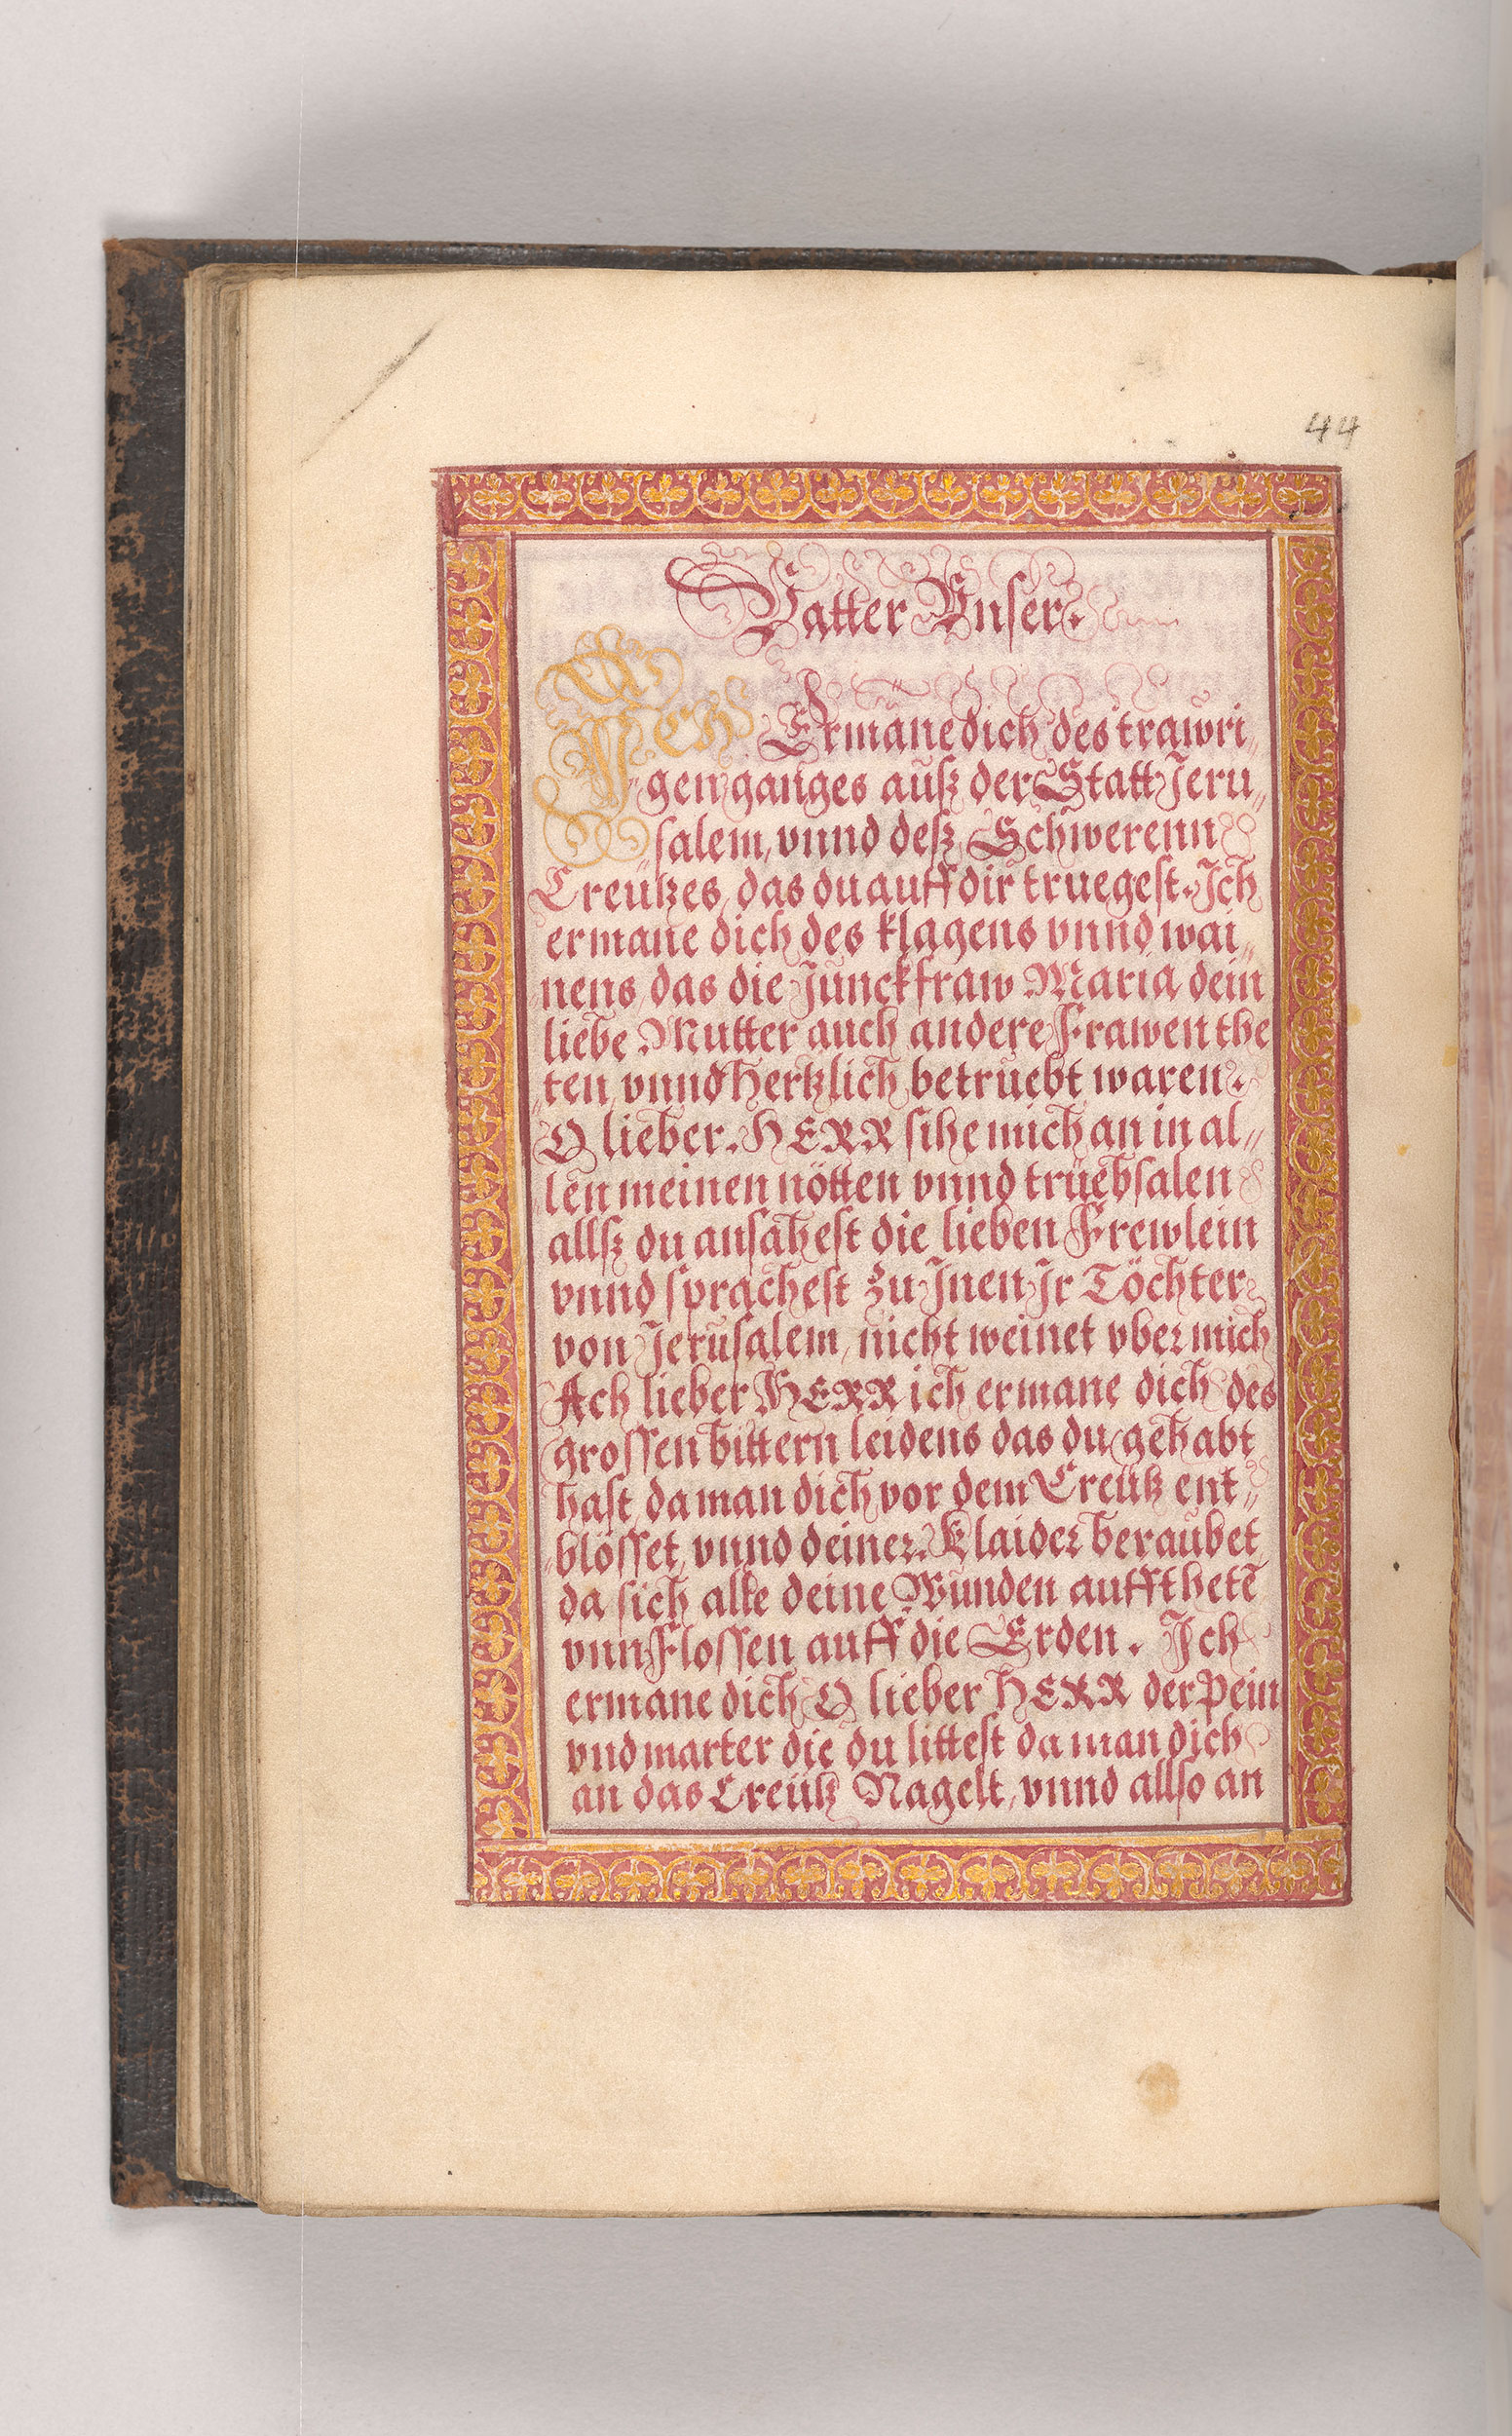 44
Vatter Vnser.
ICH Ermane dich des trawri„
„gen ganges auß der Statt Jeru„
„salem, vnnd deß Schwerenn
Creützes, das du auff dir truegest. Ich
ermane dich des klagens vnnd wai„
„nens, das die Junckfraw Maria, dein
liebe Mutter auch andere Frawen the
„ten, vnnd hertzlich betruebt waren.
O lieber HERR sihe mich an in al„
len meinen nötten vnnd trüebsalen
allß du ansahest die lieben Frewlein
vnnd sprachest zu Jnen Jr Töchter
von Jerusalem, nicht weinet vber mich
Ach lieber HERR ich ermane dich des
grossen bittern leidens das du gehabt
hast, da man dich vor dem Creütz ent„
„blösset, vnnd deiner Klaider beraubet
da sich alle deine Wunden auffthetē
vnn Flossen auff die Erden. Ich
ermane dich O lieber HERR der Pein
vnd marter die du littest da man dich
an das Creütz Nagelt, vnnd allso an